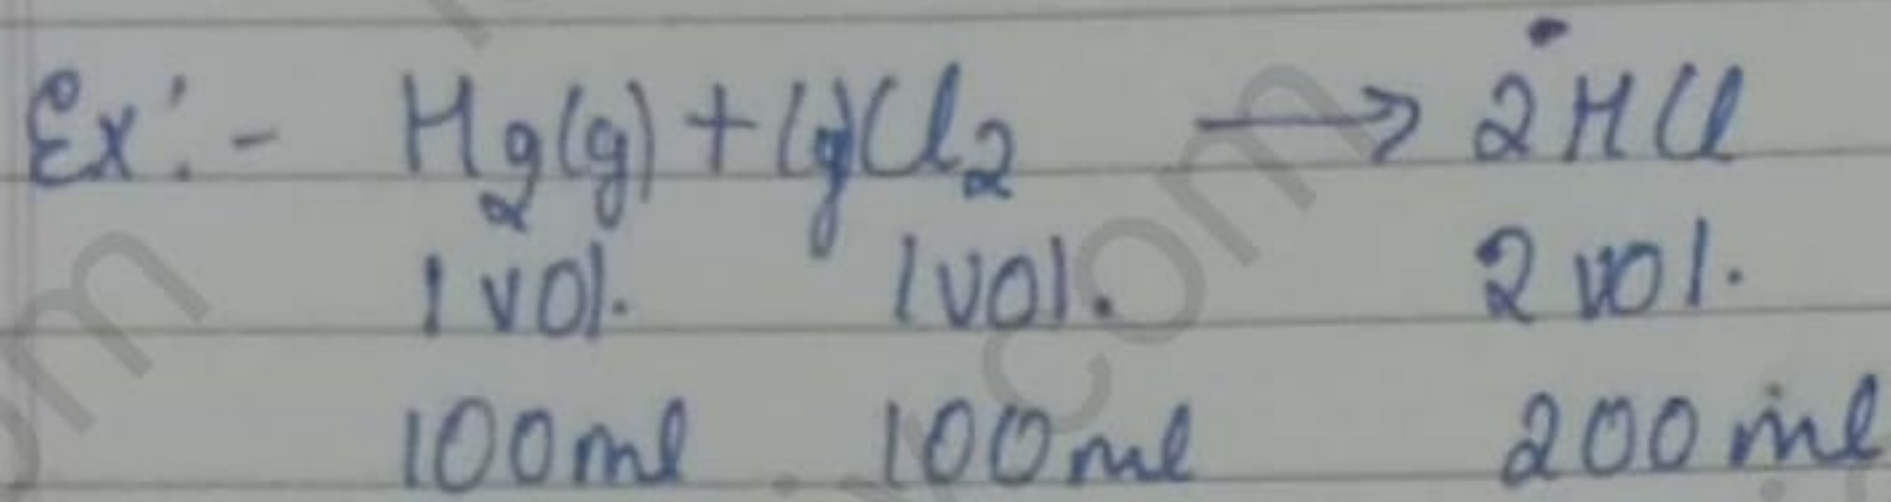 Ex:- H₂(g) + (g)Cl₂ → 2HCl
1 vol. 1 vol. 2 vol.
100ml 100ml 200ml